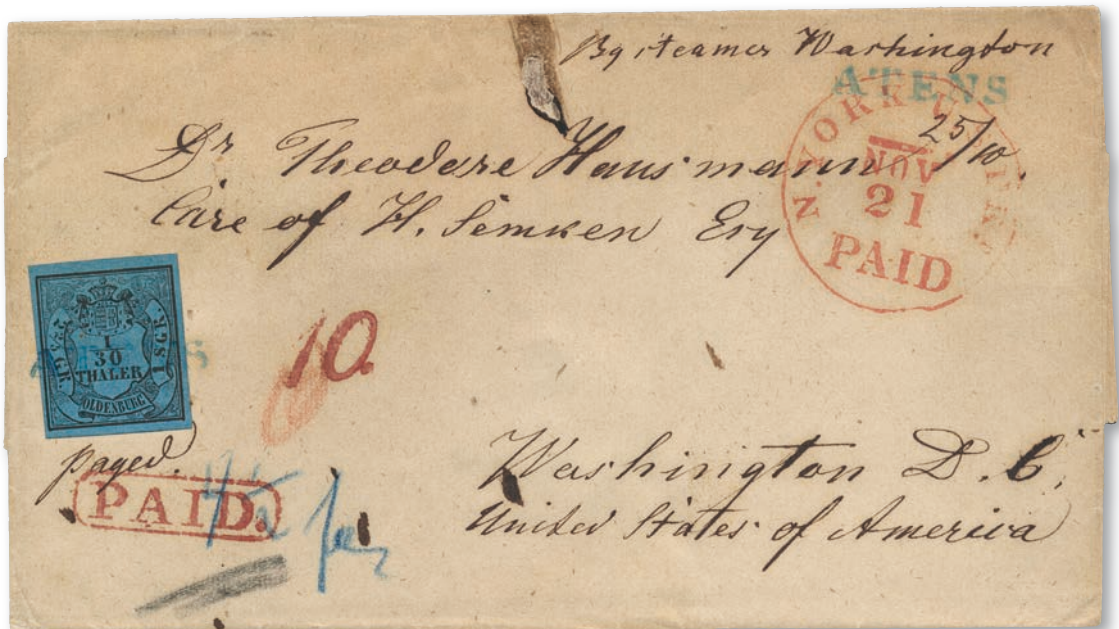 By steamer Washington
ATENS
25/10
N. YORK U. S. PKT.
NOV
21
PAID
Dr Theodore Hausmann
Care of H. Semken Esq
1
30
THALER
OLDENBURG
1 SGR.
10.
payed.
PAID.
Washington D. C.
United States of America